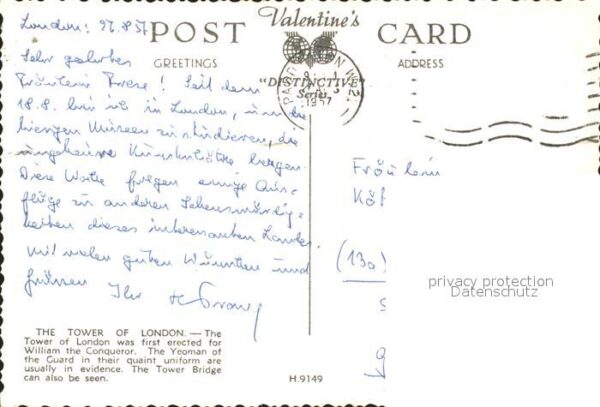 London: 27.8.57
Valentine's
POST CARD
GREETINGS
ADDRESS
"DISTINCTIVE"
Series
PADDINGTON W.2
1957
Sehr geehrtes
Fräulein ! Seit dem
18.8. bin ich in London, um die
hiesigen Museen zu studieren, die
ungeheure Kunstschätze bergen.
Diese Woche folgen einige Aus-
flüge zu anderen Sehenswürdig-
keiten dieses interessanten Landes.
Mit vielen guten Wünschen und
Grüssen Ihr
Fräulein
(13a)
privacy protection
Datenschutz
THE TOWER OF LONDON. — The
Tower of London was first erected for
William the Conqueror. The Yeoman of
the Guard in their quaint uniform are
usually in evidence. The Tower Bridge
can also be seen.
H.9149